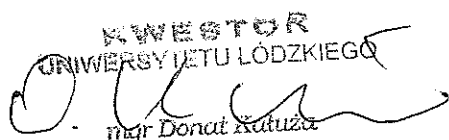 KWESTOR
UNIWERSYTETU ŁÓDZKIEGO
mgr Donat Kałuża